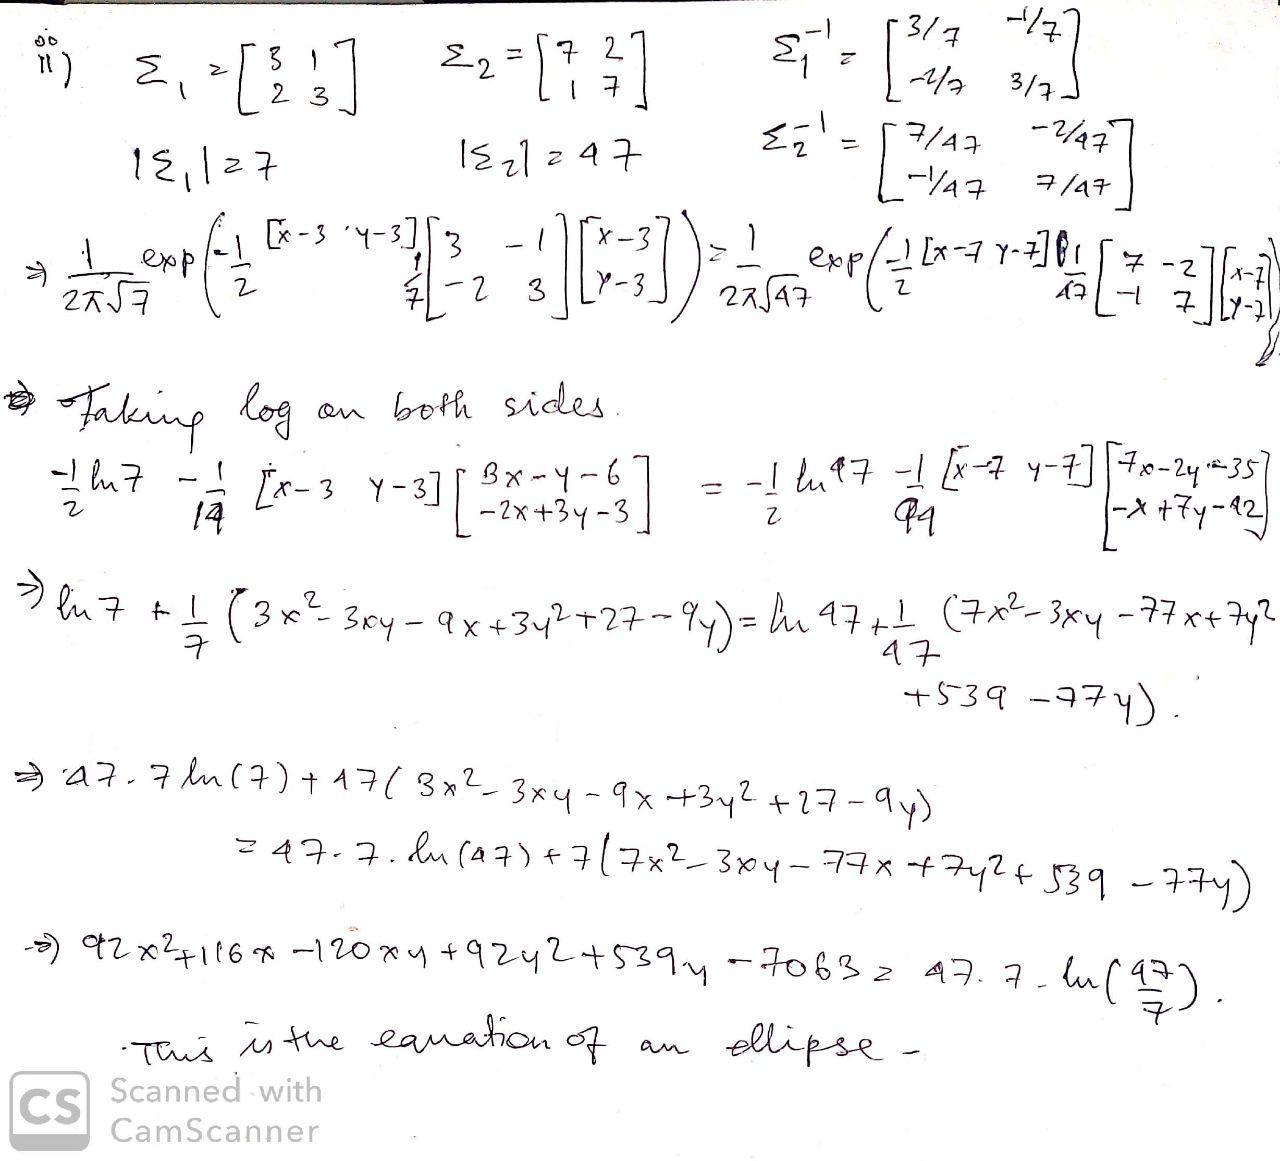 ii) Σ₁ = [3 1; 2 3] Σ₂ = [7 2; 1 7] Σ₁⁻¹ = [3/7 -1/7; -2/7 3/7]
|Σ₁| = 7 |Σ₂| = 47 Σ₂⁻¹ = [7/47 -2/47; -1/47 7/47]
⇒ 1/(2π√7) exp(-1/2 [x-3 y-3] 1/7 [3 -1; -2 3] [x-3; y-3]) = 1/(2π√47) exp(-1/2 [x-7 y-7] 1/47 [7 -2; -1 7] [x-7; y-7])
Taking log on both sides.
-1/2 ln 7 - 1/14 [x-3 y-3] [3x-y-6; -2x+3y-3] = -1/2 ln 47 - 1/94 [x-7 y-7] [7x-2y-35; -x+7y-42]
⇒ ln 7 + 1/7 (3x² - 3xy - 9x + 3y² + 27 - 9y) = ln 47 + 1/47 (7x² - 3xy - 77x + 7y²
+ 539 - 77y).
⇒ 47.7 ln(7) + 47(3x² - 3xy - 9x + 3y² + 27 - 9y)
= 47.7. ln(47) + 7(7x² - 3xy - 77x + 7y² + 539 - 77y)
⇒ 92x² + 116x - 120xy + 92y² + 539y - 7063 = 47.7. ln(47/7).
This is the equation of an ellipse -
CS Scanned with
CamScanner